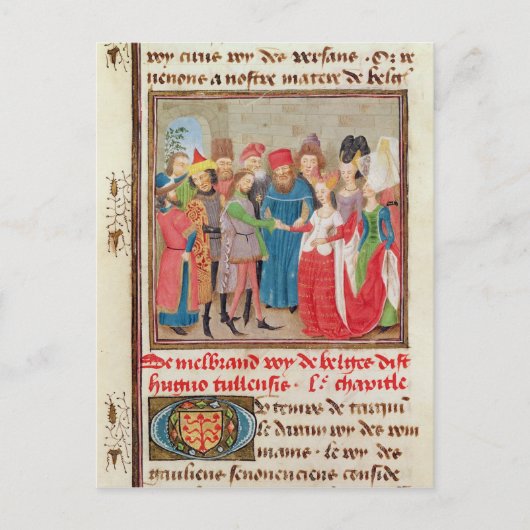 roy cirus roy des persans . Or re
uenons a nostre matere de belges
De melbrand roy de belges dist
hugues tullensis . l.e chapitle
Du temps de tarqui
le darain roy des rom
mains . le roy des
gauliens senonenciens conside